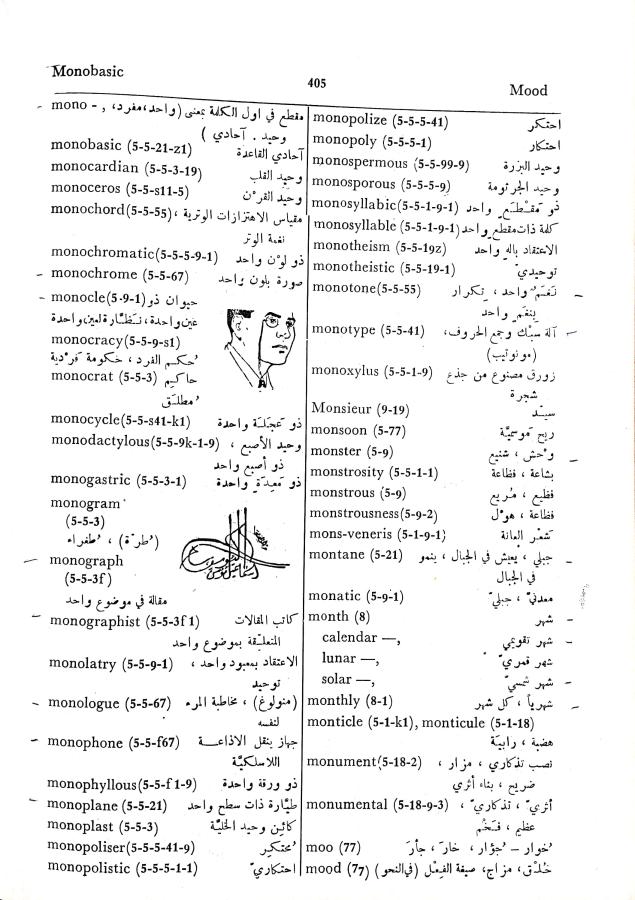 Monobasic
405
Mood
mono - , مقطع في اول الكلمة بمعنى (واحد، مفرد،
وحيد . آحادي )
monobasic (5-5-21-z1) آحادي القاعدة
monocardian (5-5-3-19) وحيد القلب
monoceros (5-5-s11-5) وحيد القرن
monochord(5-5-55) مقياس الاهتزازات الوترية ،
نغمة الوتر
monochromatic(5-5-5-9-1) ذو لون واحد
monochrome (5-5-67) صورة بلون واحد
monocle(5-9-1) حيوان ذو
عين واحدة، نظارة لعين واحدة
monocracy(5-5-9-s1)
حكم الفرد ، حكومة فردية
monocrat (5-5-3) حاكم
مطلق
monocycle(5-5-s41-k1) ذو عجلة واحدة
monodactylous(5-5-9k-1-9) وحيد الأصبع ،
ذو أصبع واحد
monogastric (5-5-3-1) ذو معدة واحدة
monogram
(5-5-3)
(طرة) ، طغراء
monograph
(5-5-3f)
مقالة في موضوع واحد
monographist (5-5-3f1) كاتب المقالات
المتعلقة بموضوع واحد
monolatry (5-5-9-1) الاعتقاد بمعبود واحد ،
توحيد
monologue (5-5-67) (منولوغ) ، مخاطبة المرء
لنفسه
monophone (5-5-f67) جهاز بنقل الاذاعة
اللاسلكية
monophyllous(5-5-f1-9) ذو ورقة واحدة
monoplane (5-5-21) طيارة ذات سطح واحد
monoplast (5-5-3) كائن وحيد الخلية
monopoliser(5-5-5-41-9) محتكر
monopolistic (5-5-5-1-1) احتكاري
monopolize (5-5-5-41) احتكر
monopoly (5-5-5-1) احتكار
monospermous (5-5-99-9) وحيد البزرة
monosporous (5-5-5-9) وحيد الجرثومة
monosyllabic(5-5-1-9-1) ذو مقطع واحد
monosyllable (5-5-1-9-1) كلمة ذات مقطع واحد
monotheism (5-5-19z) الاعتقاد باله واحد
monotheistic (5-5-19-1) توحيدي
monotone(5-5-55) نغم واحد ، تكرار
بنغم واحد
monotype (5-5-41) آلة سبك وجمع الحروف،
(مونوتيب)
monoxylus (5-5-1-9) زورق مصنوع من جذع
شجرة
Monsieur (9-19) سيد
monsoon (5-77) ريح موسمية
monster (5-9) وحش ، شنيع
monstrosity (5-5-1-1) بشاعة ، فظاعة
monstrous (5-9) فظيع ، مريع
monstrousness(5-9-2) فظاعة ، هول
mons-veneris (5-1-9-1) شعر العانة
montane (5-21) جبلي ، يعيش في الجبال ، ينمو
في الجبال
monatic (5-9-1) معدني ، جبلي
month (8) شهر
calendar —, شهر تقويمي
lunar —, شهر قمري
solar —, شهر شمسي
monthly (8-1) شهرياً ، كل شهر
monticle (5-1-k1), monticule (5-1-18)
هضبة ، رابية
monument(5-18-2) نصب تذكاري ، مزار ،
ضريح ، بناء أثري
monumental (5-18-9-3) أثري ، تذكاري ،
عظيم ، فخم
moo (77) خوار - جؤار ، خار ، جأر
mood (77) خلق، مزاج، صيغة الفعل (في النحو)